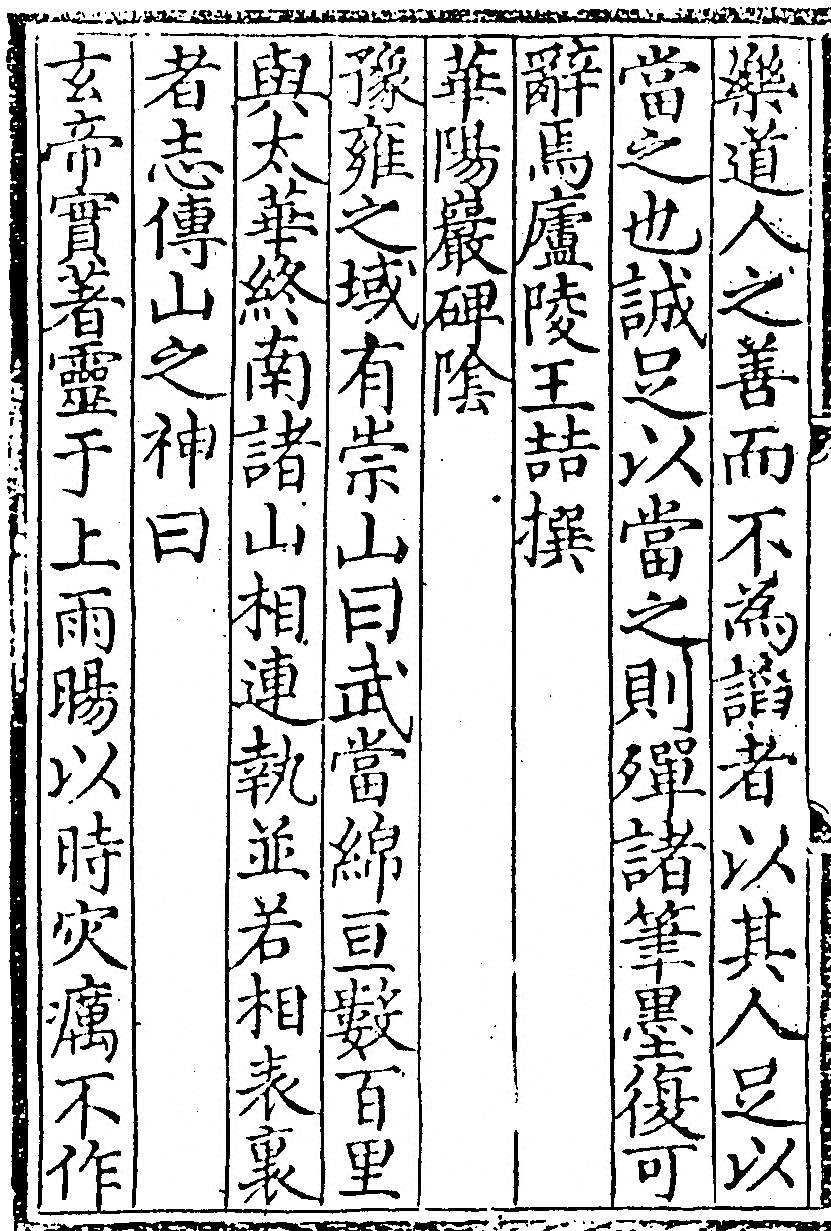 樂道人之善而不為謟者以其人足以
當之也誠足以當之則殫諸筆墨復可
辭焉廬陵王喆撰
華陽巖碑陰
豫雍之域有崇山曰武當綿亘數百里
與太華終南諸山相連執並若相表裏
者志傳山之神曰
玄帝實著靈于上雨暘以時灾癘不作